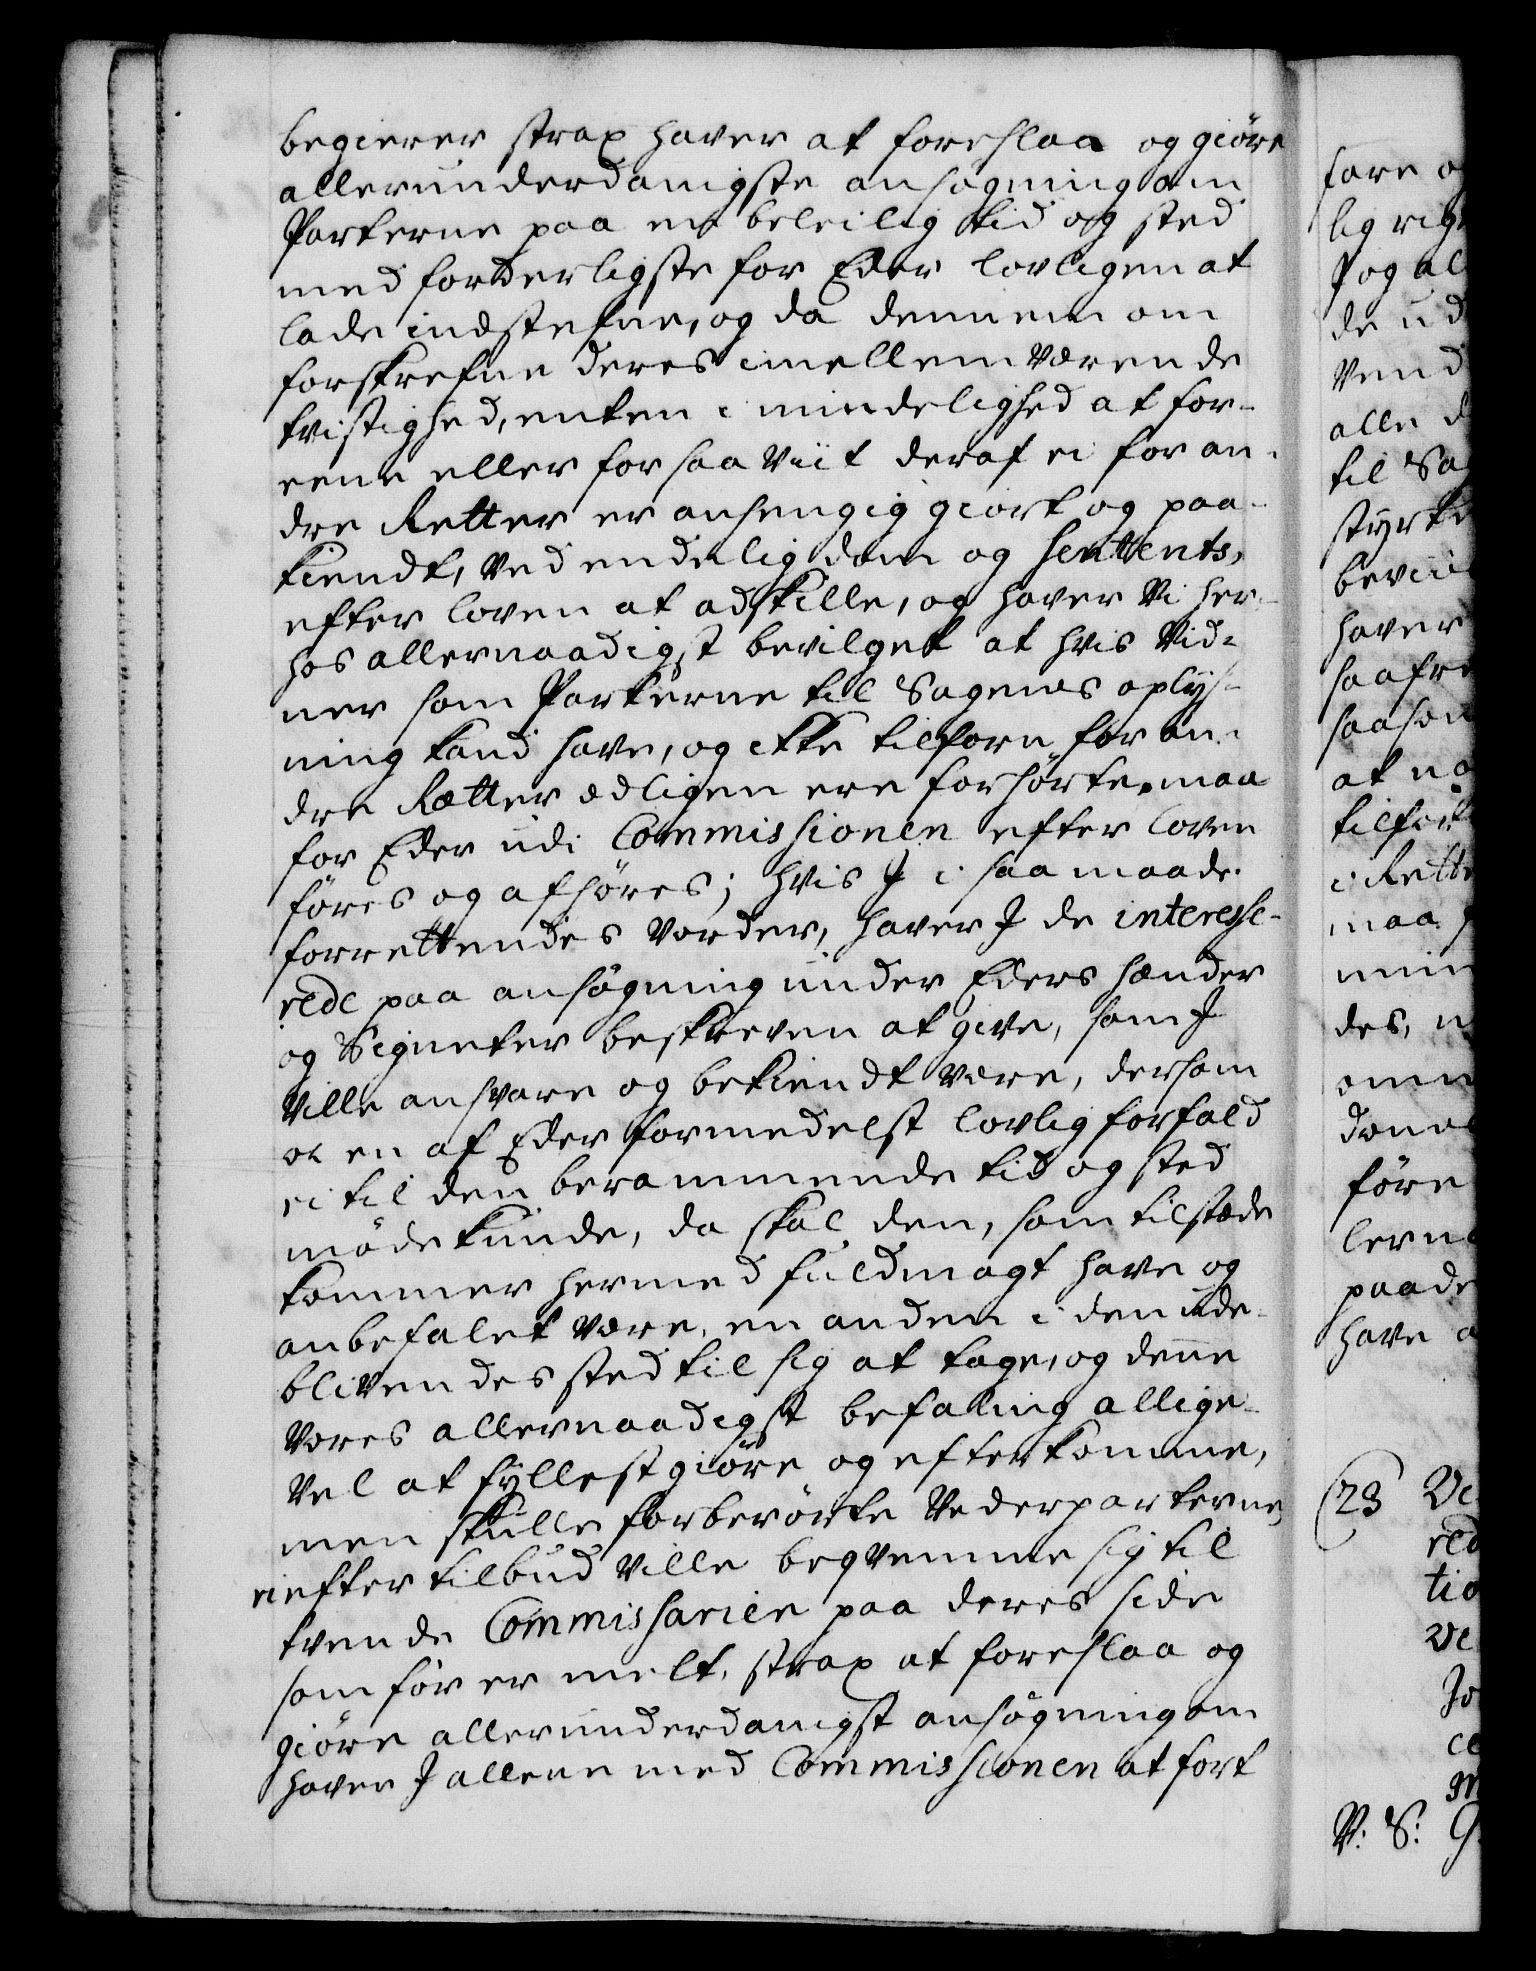 begierer strax haver at foreslaa og giöre
allerunderdanigste ansøgning om
Parterne paa en beleilig tid og sted
med forderligste for Eder lovligen at
lade indstefne, og da dennem om
forskrefne deres imellem værende
tvistighed, enten i mindelighed at for-
eene eller for saa viit deraf ei for an-
dre Retter er anhengig giort og paa-
kiendt, ved endelig dom og Sententz,
efter loven at adskille, og haver Vi her-
hos allernaadigst bevilget at hvis Vid-
ner som Parterne til Sagens oplys-
ning kand have, og ikke tilforn for an-
dre Rætter ædligen ere forhörte, maa
for Eder udi Commissionen efter loven
föres og afhöres; hvis J i saa maade
forrettendes vorder, haver J de interesse-
rede paa ansøgning under Eders hænder
og Signeter beskreven at give, som J
ville ansvare og bekiendt være, dersom
og en af Eder formedelst lovlig forfald
ei til den berammende tid og sted
møde kunde, da skal den, som tilstæde
kommer hermed fuldmagt have og
anbefalet være, en anden i den ude-
blivendes sted til sig at tage, og denne
Vores allernaadigst befaling allige-
vel at fyllestgiöre og efterkomme,
men skulle forberörte Vederparterne,
ei efter tilbud ville beqvemme sig til
tvende Commissarier paa deres side
som för er melt, strax at foreslaa og
giöre allerunderdanigst ansøgning om
haver J allene med Commissionen at fort
fare o
lig rig
J og al
de ud
Vend
alle d
til Sa
styrke
beviis
haver
saafre
saa som
at n
tilfør
i Rette
maa
min
des,
omm
före
paa de
have
23 Ve
red
tio
ve
Jo
V: S: G